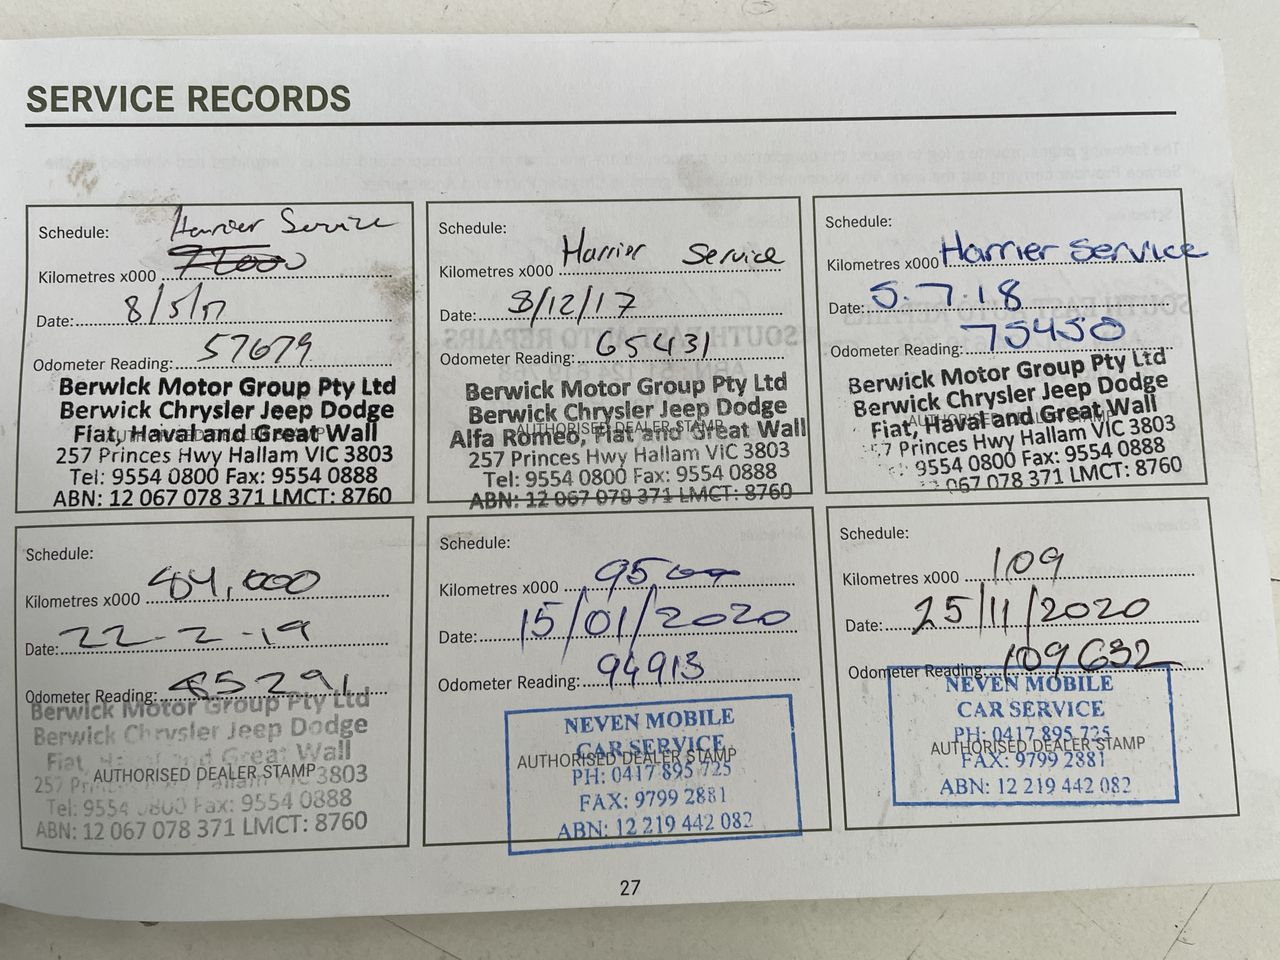 SERVICE RECORDS
Schedule: Harrier Service
Kilometres x000
Date: 8/5/17
Odometer Reading: 57679
Berwick Motor Group Pty Ltd
Berwick Chrysler Jeep Dodge
Fiat, Haval and Great Wall
AUTHORISED DEALER STAMP
257 Princes Hwy Hallam VIC 3803
Tel: 9554 0800 Fax: 9554 0888
ABN: 12 067 078 371 LMCT: 8760
Schedule:
Kilometres x000 Harrier Service
Date: 8/12/17
Odometer Reading: 65431
Berwick Motor Group Pty Ltd
Berwick Chrysler Jeep Dodge
Alfa Romeo, Fiat and Great Wall
AUTHORISED DEALER STAMP
257 Princes Hwy Hallam VIC 3803
Tel: 9554 0800 Fax: 9554 0888
ABN: 12 067 078 371 LMCT: 8760
Schedule:
Kilometres x000 Harrier Service
Date: 5.7.18
Odometer Reading: 75450
Berwick Motor Group Pty Ltd
Berwick Chrysler Jeep Dodge
Fiat, Haval and Great Wall
AUTHORISED DEALER STAMP
7 Princes Hwy Hallam VIC 3803
: 9554 0800 Fax: 9554 0888
067 078 371 LMCT: 8760
Schedule:
Kilometres x000 84,000
Date: 22-2-19
Odometer Reading: 85291
Berwick Motor Group Pty Ltd
Berwick Chrysler Jeep Dodge
Fiat and Great Wall
AUTHORISED DEALER STAMP
257 Hallam VIC 3803
Tel: 9554 0800 Fax: 9554 0888
ABN: 12 067 078 371 LMCT: 8760
Schedule:
Kilometres x000 95000
Date: 15/01/2020
Odometer Reading: 94913
NEVEN MOBILE
CAR SERVICE
AUTHORISED DEALER STAMP
PH: 0417 895 725
FAX: 9799 2881
ABN: 12 219 442 082
Schedule:
Kilometres x000 109
Date: 25/11/2020
Odometer Reading: 109632
NEVEN MOBILE
CAR SERVICE
PH: 0417 895 725
AUTHORISED DEALER STAMP
FAX: 9799 2881
ABN: 12 219 442 082
27